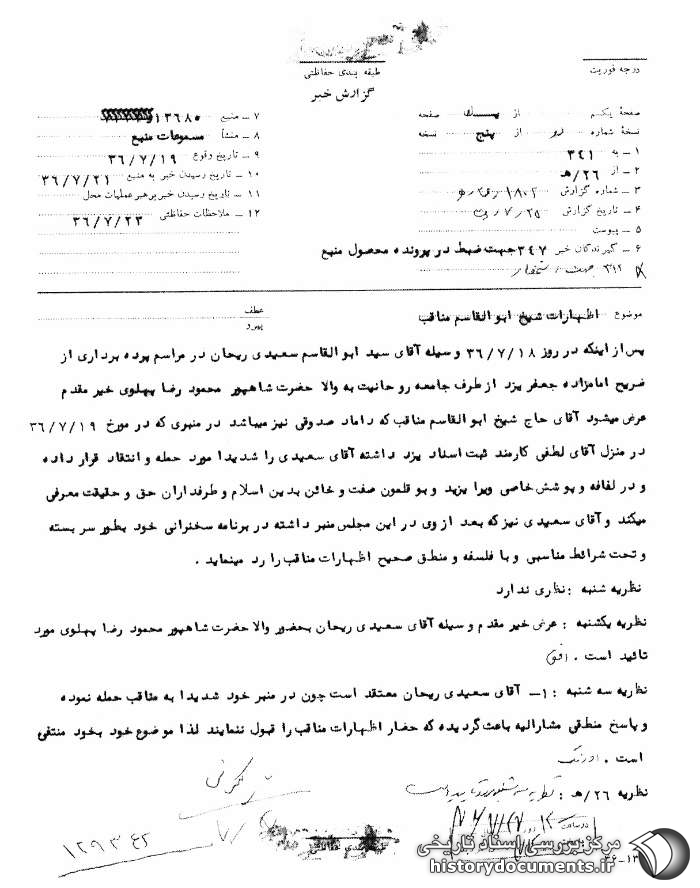 طبقه بندی حفاظتی
درجه فوریت
گزارش خبر
صفحهٔ یکم از یک صفحه
نسخهٔ شماره دو از پنج نسخه
۱ ـ به ۳۴۱
۲ ـ از ۲۶/ه‍
۳ ـ شماره گزارش ۱۸۰۲
۴ ـ تاریخ گزارش ۲۵/۷/
۵ ـ پیوست
۶ ـ گیرندگان خبر ۳۴۷ جهت ضبط در پرونده محصول منبع
۳۱۲ جهت استحضار
۷ ـ منبع ۱۳۶۸۰
۸ ـ منشأ مسموعات منبع
۹ ـ تاریخ وقوع ۳۶/۷/۱۹
۱۰ ـ تاریخ رسیدن خبر به منبع ۳۶/۷/۲۱
۱۱ ـ تاریخ رسیدن خبر برهبر عملیات محل
۱۲ ـ ملاحظات حفاظتی ۳۶/۷/۲۳
موضوع اظهارات شیخ ابوالقاسم مناقب
عطف
پیرو
پس از اینکه در روز ۳۶/۷/۱۸ وسیله آقای سید ابوالقاسم سعیدی ریحان در مراسم پرده برداری از
ضریح امامزاده جعفر یزد از طرف جامعه روحانیت به والا حضرت شاهپور محمود رضا پهلوی خیر مقدم
عرض میشود آقای حاج شیخ ابوالقاسم مناقب که داماد صدوقی نیز میباشد در منبری که در مورخ ۳۶/۷/۱۹
در منزل آقای لطفی کارمند ثبت اسناد یزد داشته آقای سعیدی را شدیدا مورد حمله و انتقاد قرار داده
و در لفافه و پوشش خاصی ویرا یزید و بوقلمون صفت و خائن بدین اسلام و طرفداران حق و حقیقت معرفی
میکند و آقای سعیدی نیز که بعد از وی در این مجلس منبر داشته در برنامه سخنرانی خود بطور سر بسته
و تحت شرائط مناسبی و با فلسفه و منطق صحیح اظهارات مناقب را رد مینماید .
نظریه شنبه : نظری ندارد
نظریه یکشنبه : عرض خیر مقدم وسیله آقای سعیدی ریحان بحضور والا حضرت شاهپور محمود رضا پهلوی مورد
تائید است . افق
نظریه سه شنبه : ۱ـ آقای سعیدی ریحان معتقد است چون در منبر خود شدیدا به مناقب حمله نموده
و پاسخ منطقی مشارالیه باعث گردیده که حضار اظهارات مناقب را قبول ننمایند لذا موضوع خود بخود منتفی
است . اورنگ
نظریه ۲۶/ه‍ : نظریه سه شنبه مورد تائید است
طبقه بندی حفاظتی
مرکز بررسی اسناد تاریخی
historydocuments.ir